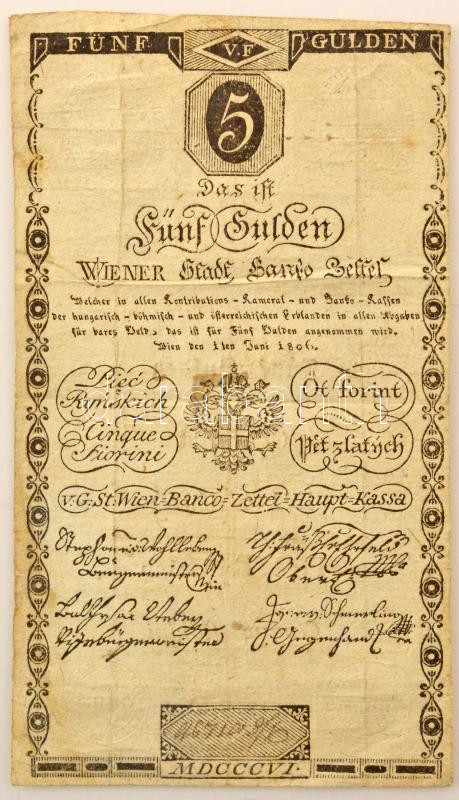 FÜNF V.F GULDEN
5
Das ist
Fünf Gulden
WIENER Stadt Banko Zettel
Welcher in allen Kontributions-Kameral-und Banko-Kassen
der hungarisch-böhmisch-und österreichischen Erblanden in allen Abgaben
für bares Geld, das ist für Fünf Gulden angenommen wird.
Wien den 1ten Juni 1806.
Pieć
Ryńskich
Öt forint
Cinque
Fiorini
Pět zlatych
v.G.St.Wien=Banco=Zettel=Haupt=Kassa
Bürgermeister
Ober
Vizebürgermeister
Gegenhand
MDCCCVI.